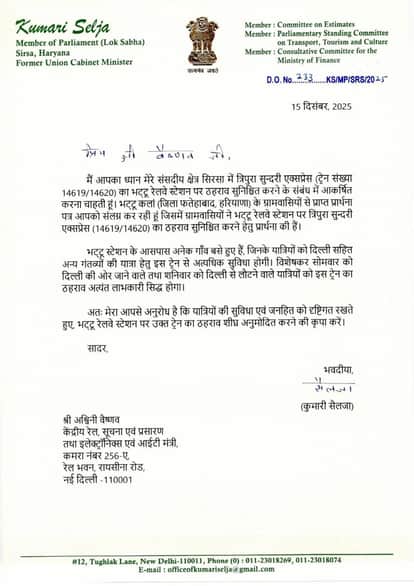 Kumari Selja
Member of Parliament (Lok Sabha)
Sirsa, Haryana
Former Union Cabinet Minister
सत्यमेव जयते
Member : Committee on Estimates
Member : Parliamentary Standing Committee
on Transport, Tourism and Culture
Member : Consultative Committee for the
Ministry of Finance
D.O. No. 233 KS/MP/SRS/2025
15 दिसंबर, 2025
श्री वैष्णव जी,
मैं आपका ध्यान मेरे संसदीय क्षेत्र सिरसा में त्रिपुरा सुन्दरी एक्सप्रेस (ट्रेन संख्या
14619/14620) का भट्टू रेलवे स्टेशन पर ठहराव सुनिश्चित करने के संबंध में आकर्षित
करना चाहती हूं। भट्टू कलां (जिला फतेहाबाद, हरियाणा) के ग्रामवासियों से प्राप्त प्रार्थना
पत्र आपको संलग्न कर रही हूं जिसमें ग्रामवासियों ने भट्टू रेलवे स्टेशन पर त्रिपुरा सुन्दरी
एक्सप्रेस (14619/14620) का ठहराव सुनिश्चित करने हेतु प्रार्थना की हैं।
भट्टू स्टेशन के आसपास अनेक गाँव बसे हुए हैं, जिनके यात्रियों को दिल्ली सहित
अन्य गंतव्यों की यात्रा हेतु इस ट्रेन से अत्यधिक सुविधा होगी। विशेषकर सोमवार को
दिल्ली की ओर जाने वाले तथा शनिवार को दिल्ली से लौटने वाले यात्रियों को इस ट्रेन का
ठहराव अत्यंत लाभकारी सिद्ध होगा।
अतः मेरा आपसे अनुरोध है कि यात्रियों की सुविधा एवं जनहित को दृष्टिगत रखते
हुए, भट्टू रेलवे स्टेशन पर उक्त ट्रेन का ठहराव शीघ्र अनुमोदित करने की कृपा करें।
सादर,
भवदीया,
सैलजा
(कुमारी सैलजा)
श्री अश्विनी वैष्णव
केंद्रीय रेल, सूचना एवं प्रसारण
तथा इलेक्ट्रॉनिक्स एवं आईटी मंत्री,
कमरा नंबर 256-ए,
रेल भवन, रायसीना रोड,
नई दिल्ली -110001
#12, Tughlak Lane, New Delhi-110011, Phone (0) : 011-23018269, 011-23018074
E-mail : officeofkumariselja@gmail.com